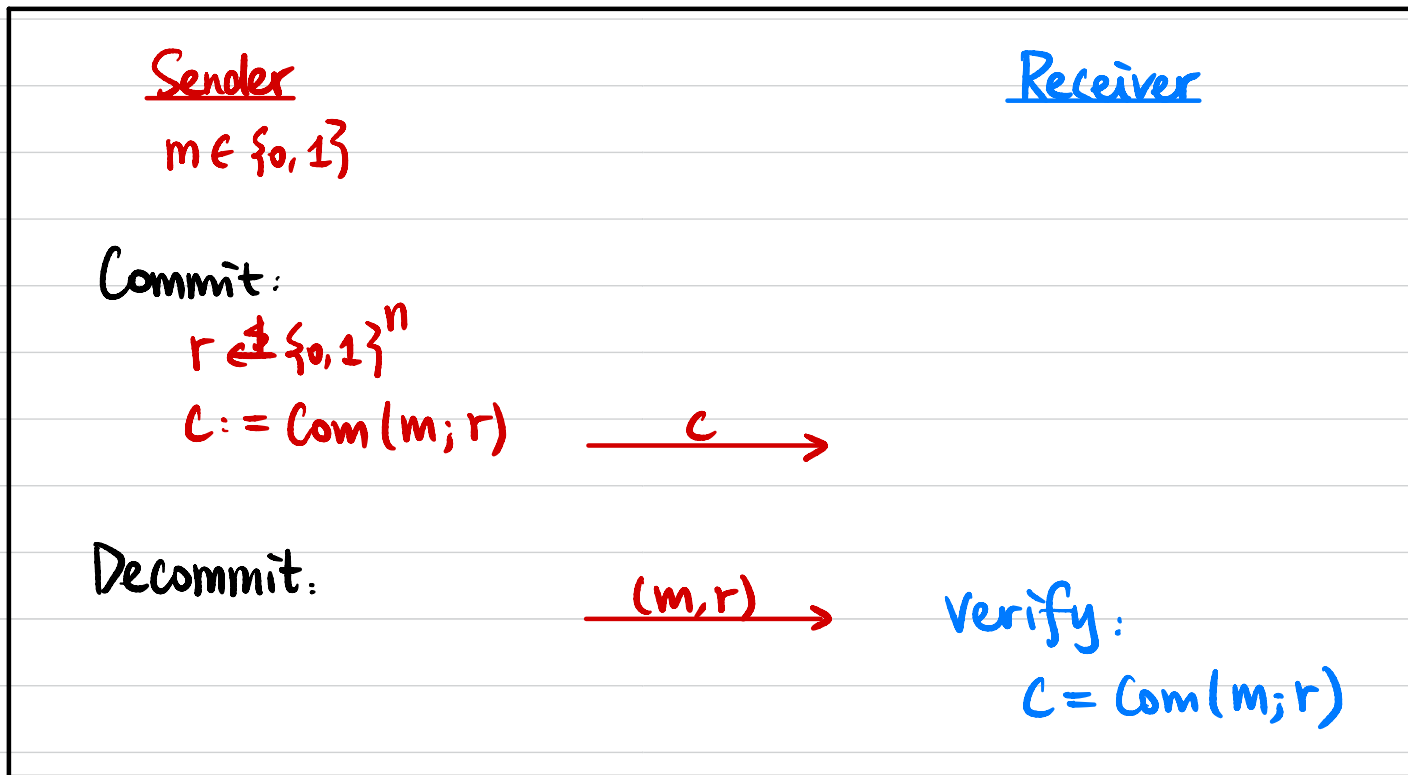 Sender Receiver
m ∈ {0,1}
Commit:
r ←$ {0,1}^n
C := Com(m; r) C
Decommit: (m,r) Verify:
C = Com(m; r)